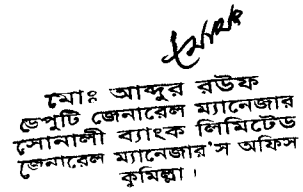 মোঃ আব্দুর রউফ
ডেপুটি জেনারেল ম্যানেজার
সোনালী ব্যাংক লিমিটেড
জেনারেল ম্যানেজার'স অফিস
কুমিল্লা।